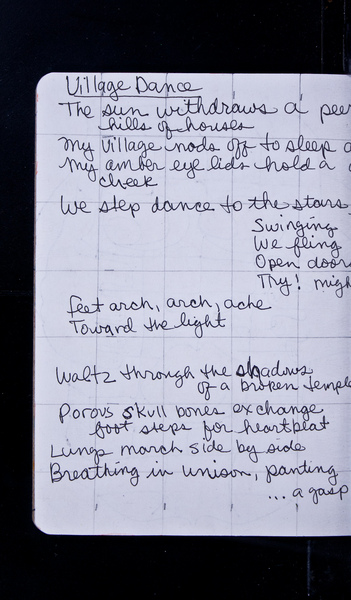 Village Dance
The sun withdraws a
hills of houses
My village nods off to sleep
My amber eye lids hold a
cheek
We step dance to the stars
Swinging
We fling
Open door
Try! migh
feet arch, arch, ache
Toward the light
Waltz through the shadows
of a broken temple
Porous skull bones exchange
foot steps for heartbeat
Lungs march side by side
Breathing in unison, panting
... a gasp